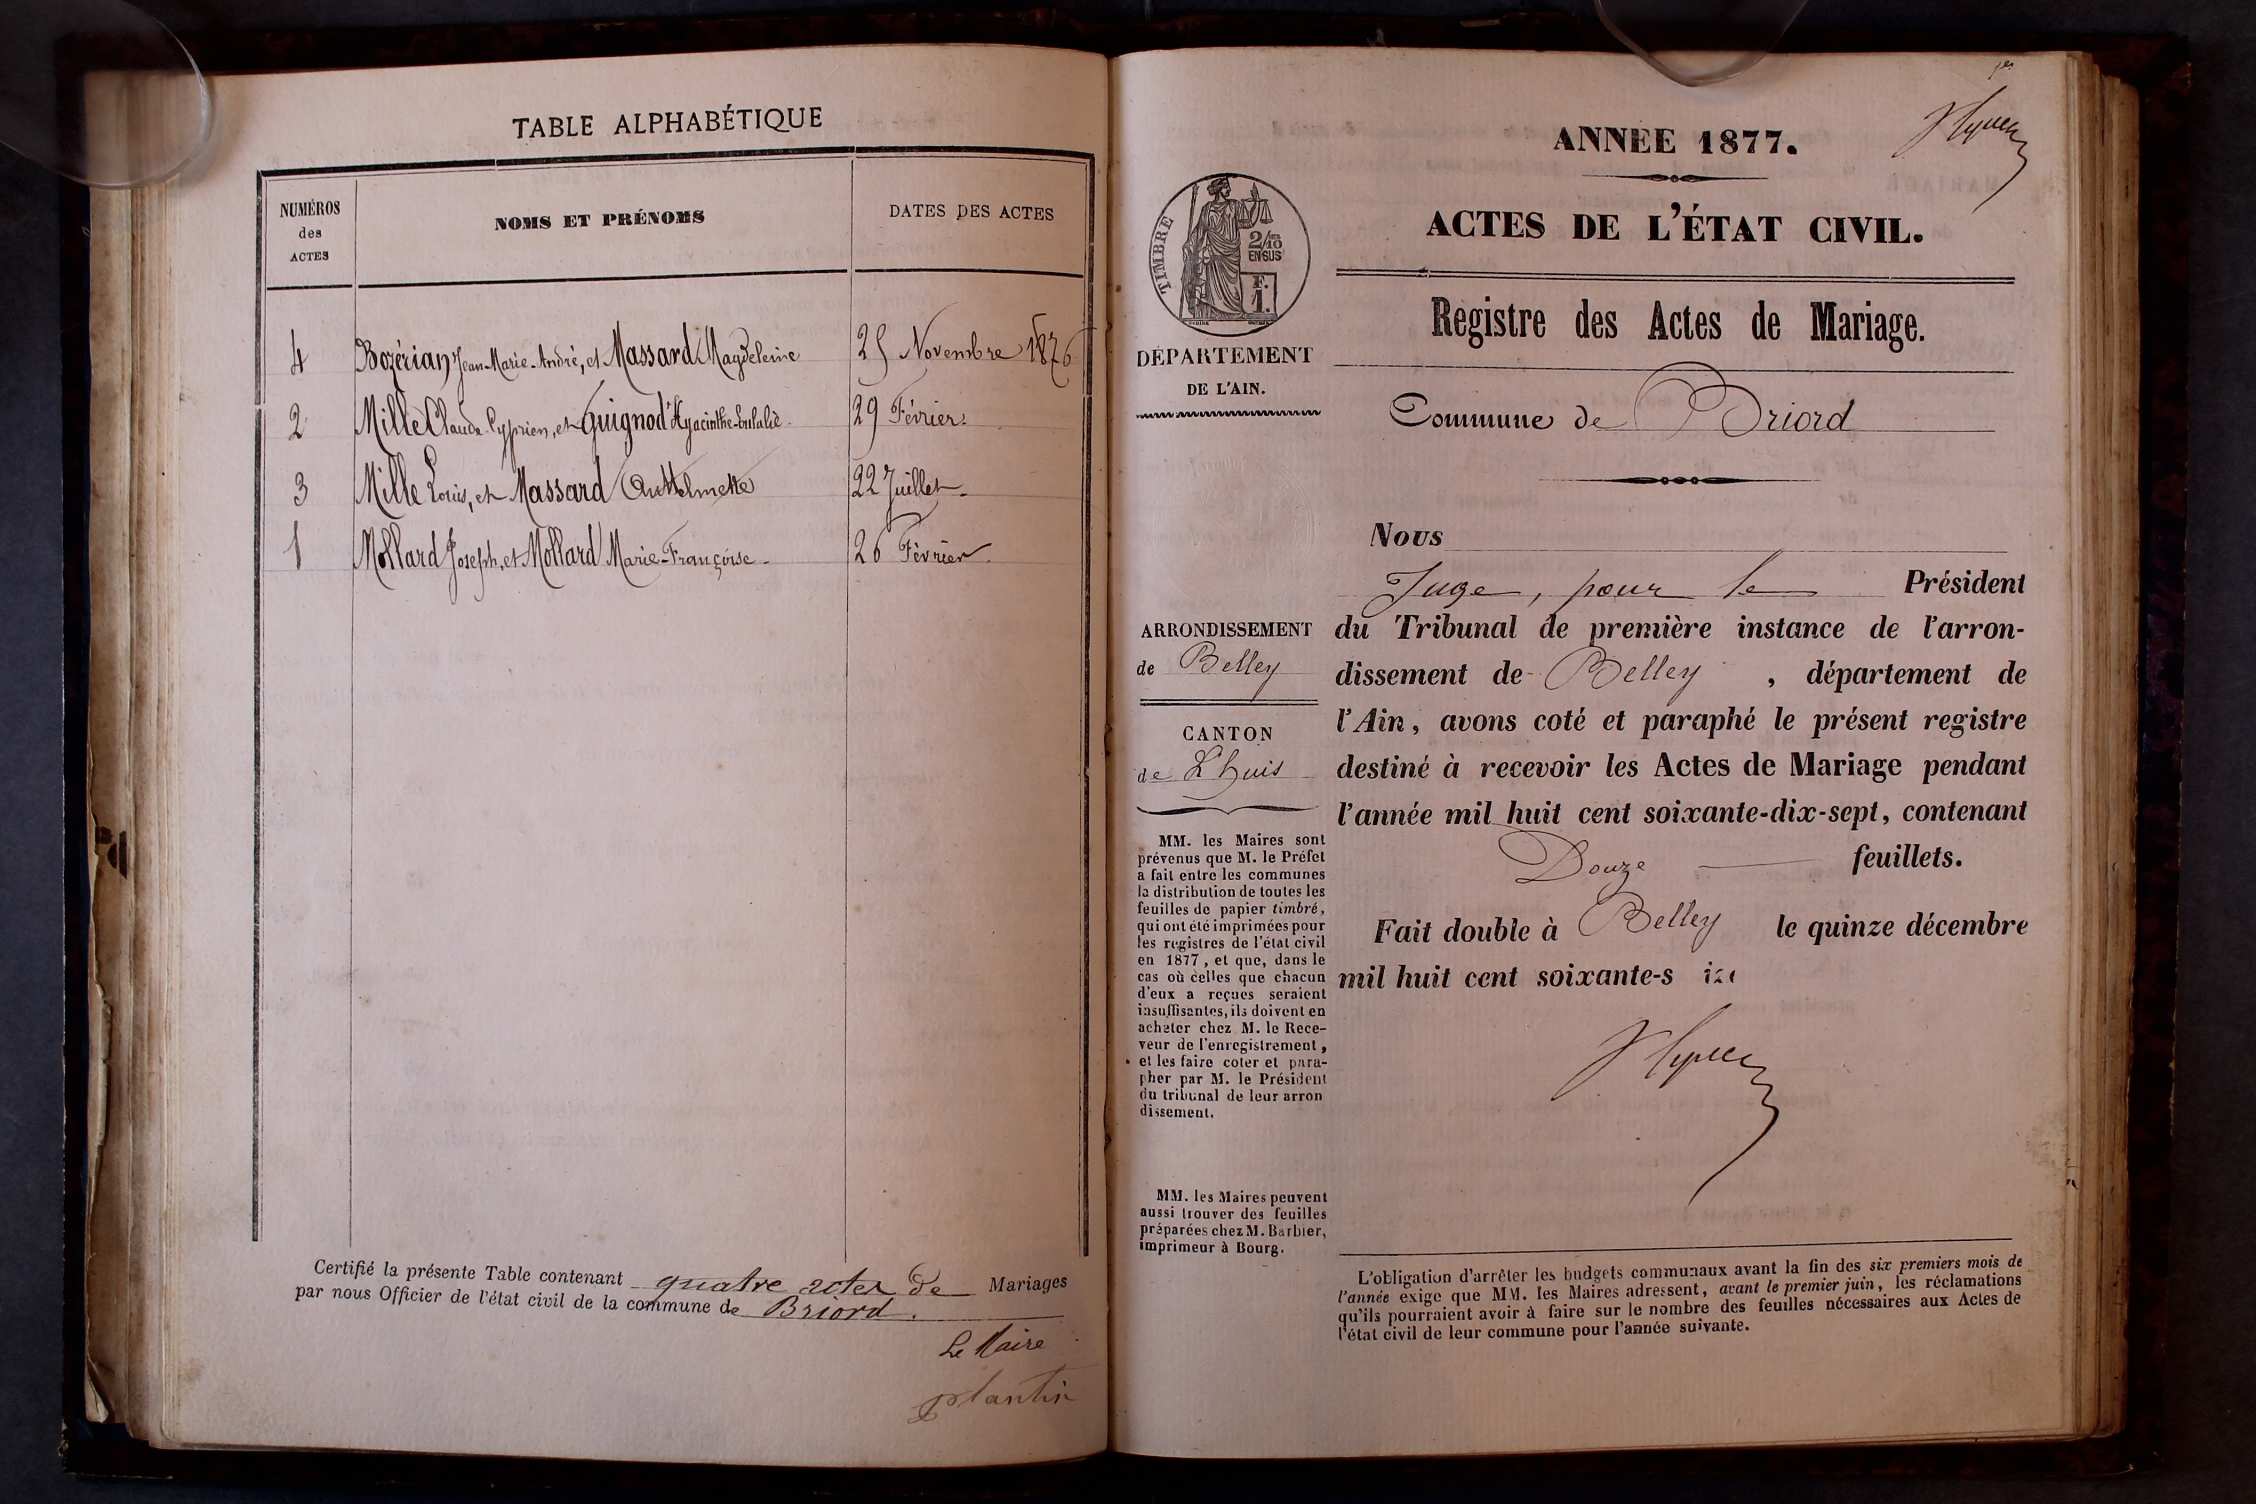 TABLE ALPHABÉTIQUE
NUMÉROS
des
ACTES
NOMS ET PRÉNOMS
DATES DES ACTES
4 Bozérian Jean-Marie-André, et Massard Magdeleine 25 Novembre 1876
2 Mille Claude Cyprien, et Guignod Hyacinthe-Eulalie 29 Février.
3 Mille Louis, et Massard Anthelmette 22 Juillet
1 Mollard Joseph, et Mollard Marie-Françoise 26 Février
Certifié la présente Table contenant quatre actes de Mariages
par nous Officier de l'état civil de la commune de Briord.
Le Maire
Plantin
1er
ANNÉE 1877.
ACTES DE L'ÉTAT CIVIL.
TIMBRE
2/10
EN SUS
F.
1.
Registre des Actes de Mariage.
DÉPARTEMENT
DE L'AIN.
Commune de Briord
ARRONDISSEMENT
de Belley
CANTON
de Lhuis
MM. les Maires sont
prévenus que M. le Préfet
a fait entre les communes
la distribution de toutes les
feuilles de papier timbré,
qui ont été imprimées pour
les registres de l'état civil
en 1877, et que, dans le
cas où celles que chacun
d'eux a reçues seraient
insuffisantes, ils doivent en
acheter chez M. le Rece-
veur de l'enregistrement,
et les faire coter et para-
pher par M. le Président
du tribunal de leur arron
dissement.
MM. les Maires peuvent
aussi trouver des feuilles
préparées chez M. Barbier,
imprimeur à Bourg.
Nous
Juge, pour le Président
du Tribunal de première instance de l'arron-
dissement de Belley, département de
l'Ain, avons coté et paraphé le présent registre
destiné à recevoir les Actes de Mariage pendant
l'année mil huit cent soixante-dix-sept, contenant
Douze feuillets.
Fait double à Belley le quinze décembre
mil huit cent soixante-s
L'obligation d'arrêter les budgets communaux avant la fin des six premiers mois de
l'année exige que MM. les Maires adressent, avant le premier juin, les réclamations
qu'ils pourraient avoir à faire sur le nombre des feuilles nécessaires aux Actes de
l'état civil de leur commune pour l'année suivante.